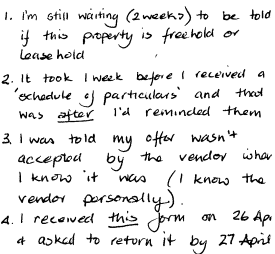 1. I'm still waiting (2 weeks) to be told
if this property is freehold or
leasehold
2. It took 1 week before I received a
'schedule of particulars' and that
was after I'd reminded them
3. I was told my offer wasn't
accepted by the vendor when
I know it was (I know the
vendor personally).
4. I received this form on 26 Apr
& asked to return it by 27 April